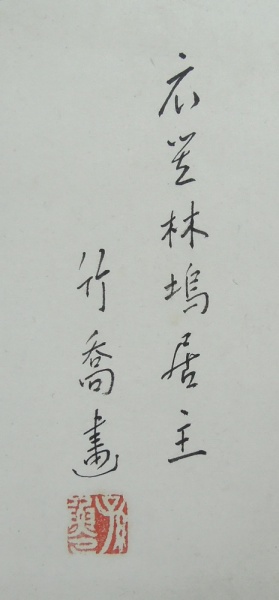 衣笠林塢居主
竹喬畫